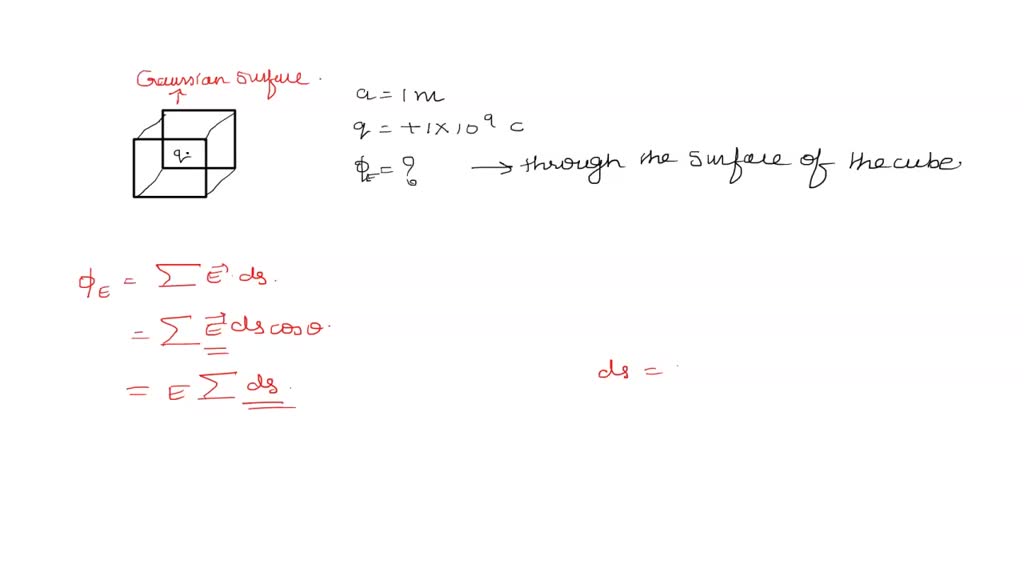 Gaussian Surface.
q.
a = 1 m
q = +1×10⁹ C
ϕ_E = ? → through the surface of the cube.
ϕ_E = Σ E⃗. ds.
= Σ E⃗ ds cos θ.
= E Σ ds.
ds =